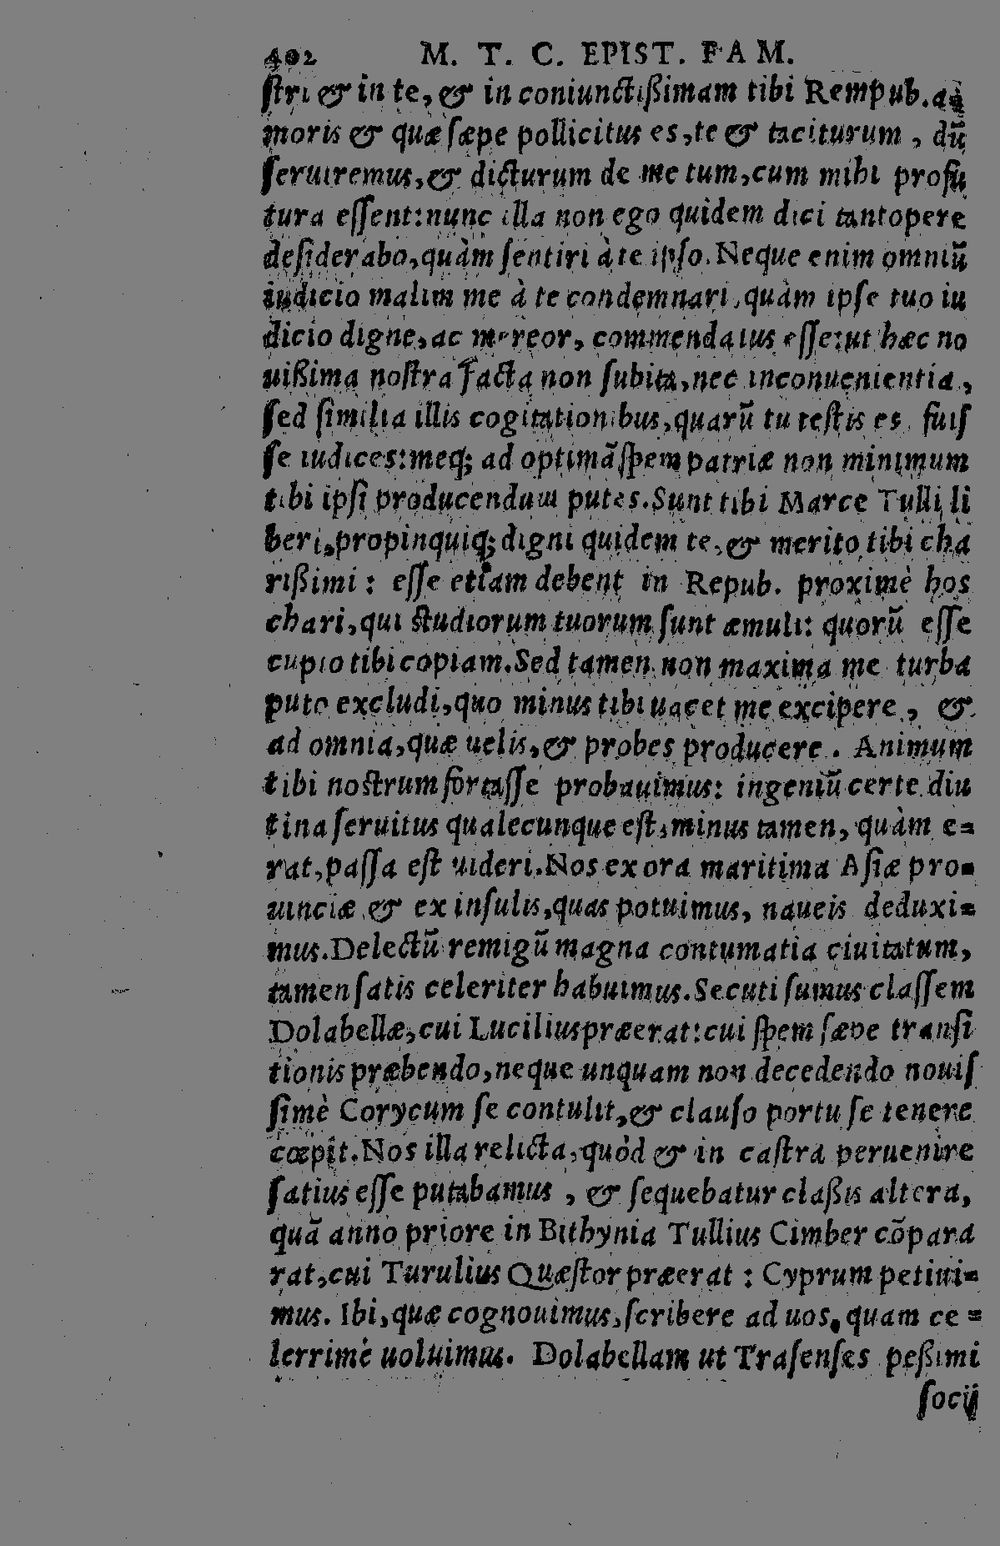 402 M. T. C. EPIST. FAM.
ſtri & in te, & in coniunctißimam tibi Rempub. a=
moris & quæ ſæpe pollicitus es, te & taciturum, dũ
ſeruiremus, & dicturum de me tum, cum mihi profu
tura eſſent: nunc illa non ego quidem dici tantopere
deſiderabo, quàm ſentiri à te ipſo. Neque enim omniũ
iudicio malim me à te condemnari, quàm ipſe tuo iu
dicio digne, ac mereor, commendatus eſſe: ut hæc no
uißima noſtra facta non ſubita, nec inconuenientia,
ſed ſimilia illis cogitationibus, quarũ tu teſtis es, fuiſ
ſe iudices: meq; ad optimã ſpem patriæ non minimum
tibi ipſi producendum putes. Sunt tibi Marce Tulli li
beri, propinquiq; digni quidem te, & merito tibi cha
rißimi: eſſe etiam debent in Repub. proximè hos
chari, qui ſtudiorum tuorum ſunt æmuli: quorũ eſſe
cupio tibi copiam. Sed tamen non maxima me turba
puto excludi, quo minus tibi uacet me excipere, &
ad omnia, quæ uelis, & probes producere. Animum
tibi noſtrum fortaſſe probauimus: ingeniũ certe diu
tina ſeruitus qualecunque eſt, minus tamen, quàm e=
rat, paſſa eſt uideri. Nos ex ora maritima Aſiæ pro=
uinciæ & ex inſulis, quas potuimus, naueis deduxi=
mus. Delectũ remigũ magna contumatia ciuitatum,
tamen ſatis celeriter habuimus. Secuti ſumus claſſem
Dolabellæ, cui Lucilius præerat: cui ſpem ſæpe tranſi
tionis præbendo, neque unquam non decedendo nouiſ
ſimè Corycum ſe contulit, & clauſo portu ſe tenere
cœpit. Nos illa relicta, quòd & in caſtra peruenire
ſatius eſſe putabamus, & ſequebatur claßis altera,
quã anno priore in Bithynia Tullius Cimber cõpara
rat, cui Turulius Quæſtor præerat: Cyprum petiui=
mus. Ibi, quæ cognouimus, ſcribere ad uos, quam ce=
lerrimè uoluimus. Dolabellam ut Traſenſes peßimi
ſocij